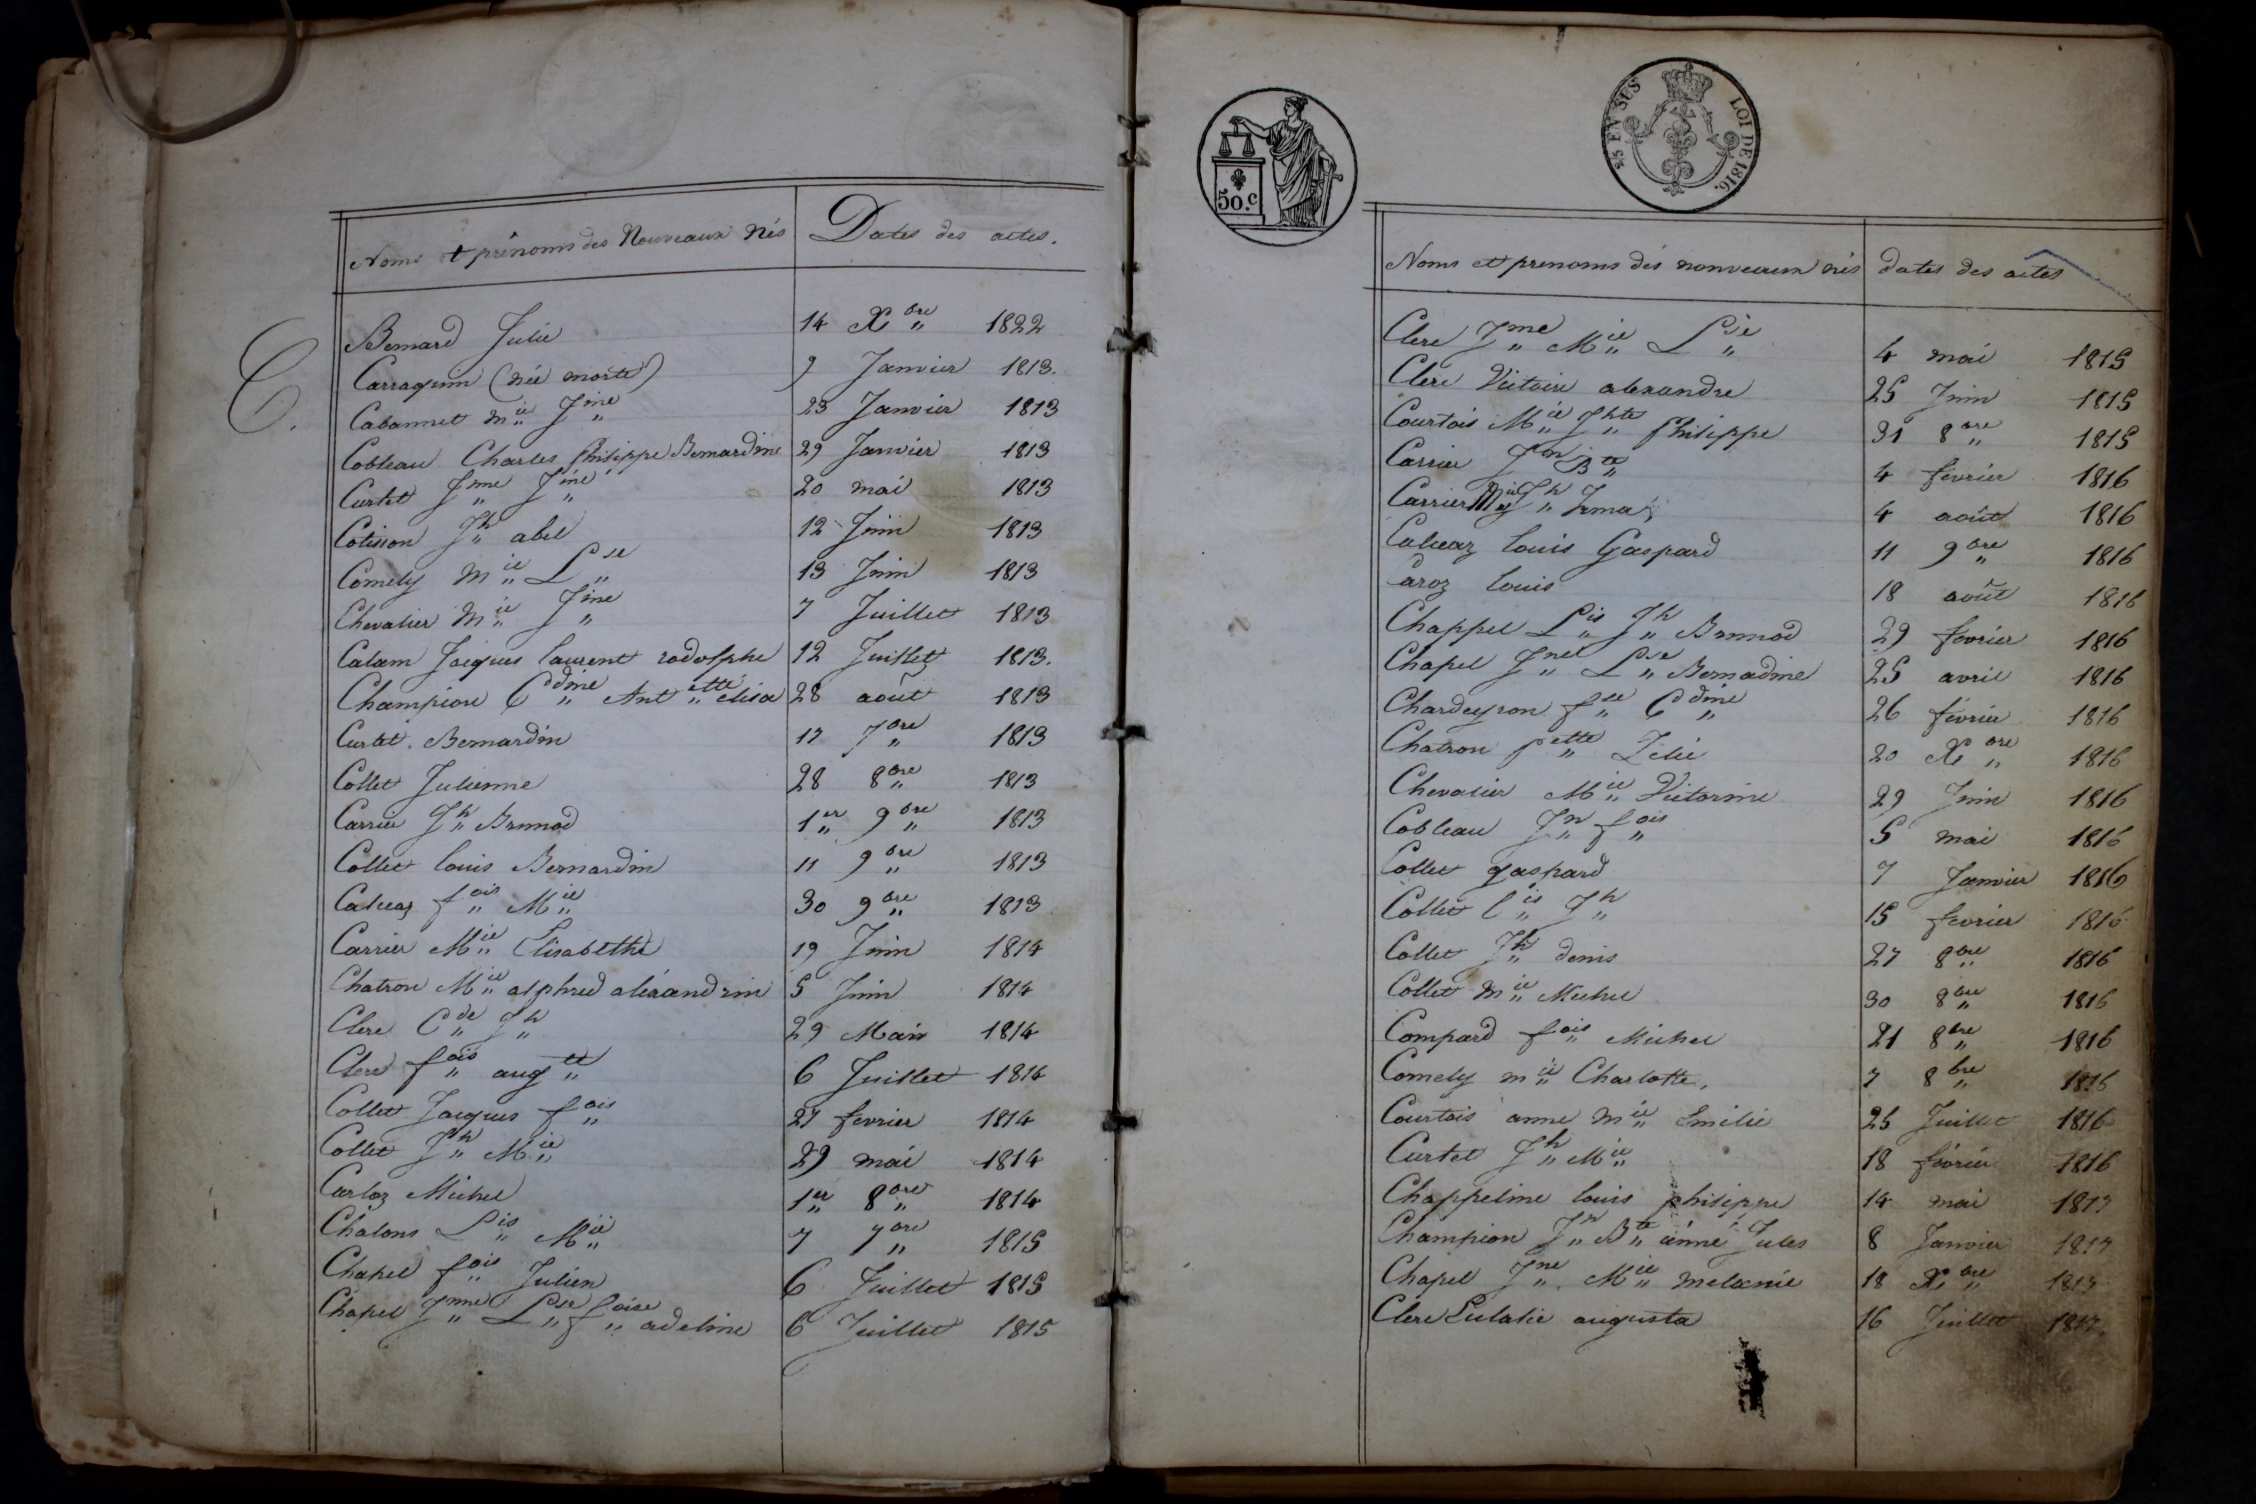 Noms et prénoms des Nouveaux nés Dates des actes.
Bernard Julie 14 Xbre 1822
C.
Carraguin (née morte) 9 Janvier 1813.
Cabannet Mie Jine 23 Janvier 1813
Cobleau Charles Philippe Bernardine 29 Janvier 1813
Curtet Jme Jine 20 mai 1813
Cotisson Jh abel 12 Juin 1813
Comely Mie Lse 13 Juin 1813
Chevalier Mie Jine 7 Juillet 1813
Calam Jacques laurent rodolphe 12 Juillet 1813.
Champion Cdine Antette elisa 28 août 1813
Curtet Bernardin 17 7bre 1813
Collet Julienne 28 8bre 1813
Carrier Jh Brunod 1er 9bre 1813
Collet louis Bernardin 11 9bre 1813
Calvaz fois Mie 30 9bre 1813
Carrier Mie Elisabethe 19 Juin 1814
Chatron Mie alphred aléxandrin 5 Juin 1814
Clere Cde Jh 29 Mars 1814
Clere fois augte 6 Juillet 1814
Collet Jacques fois 27 fevrier 1814
Collet Jh Mie 29 mai 1814
Carloz Michel 1er 8bre 1814
Chalons Lis Mie 7 7bre 1815
Chapel fois Julien 6 Juillet 1815
Chapel Jnne Lse foise adeline 6 Juillet 1815
50.c
25 EN SUS LOI DE 1816.
Noms et prenoms dés nouveaux nés dates des actes
Clere Jme Mie Lse 4 mai 1815
Clere Victoire alexandre 25 Juin 1815
Courtois Mie Jhte Philippe 31 8bre 1815
Carrier Jn Bte 4 fevrier 1816
Carrier Mie Jh Irma 4 août 1816
Calvaz louis Gaspard 11 9bre 1816
Caroz louis 18 août 1816
Chappel Lis Jh Brunod 29 fevrier 1816
Chapel Jne Lse Bernadine 25 avril 1816
Chardeyron fse Cdine 26 fevrier 1816
Chatron Pette Zélie 20 Xbre 1816
Chevalier Mie Victorine 29 Juin 1816
Cobleau Jn fois 5 mai 1816
Collet gaspard 7 Janvier 1816
Collet Lis Jh 15 fevrier 1816
Collet Jh denis 27 8bre 1816
Collet Mie Michel 30 8bre 1816
Compard fois Michel 21 8bre 1816
Comely mie Charlotte. 7 8bre 1816
Courtois anne mie Emilie 25 Juillet 1816
Curtet Jh Mie 18 février 1816
Chappeline louis philippe 14 mai 1817
Champion Jn Bte aimé Jules 8 Janvier 1817
Chapel Jne Mie melanie 18 Xbre 1817
Clere Eulalie augusta 16 Juillet 1817